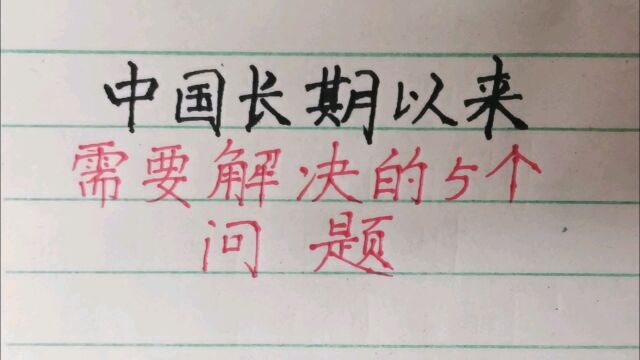 中国长期以来
需要解决的5个
问题